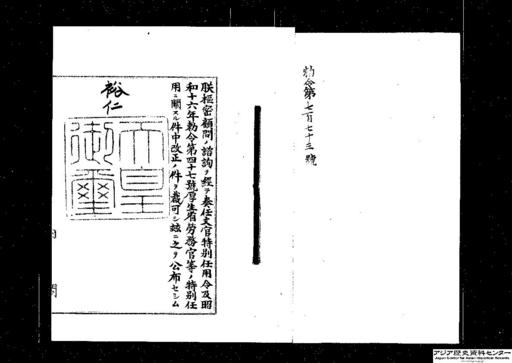 勅令第七百七十三號
朕樞密顧問ノ諮詢ヲ經テ奏任文官特別任用令及昭
和十六年勅令第四十七號厚生省勞務官等ノ特別任
用ニ關スル件中改正ノ件ヲ裁可シ玆ニ之ヲ公布セシム
裕仁
天皇
御璽
内 閣
アジア歴史資料センター
Japan Center for Asian Historical Records